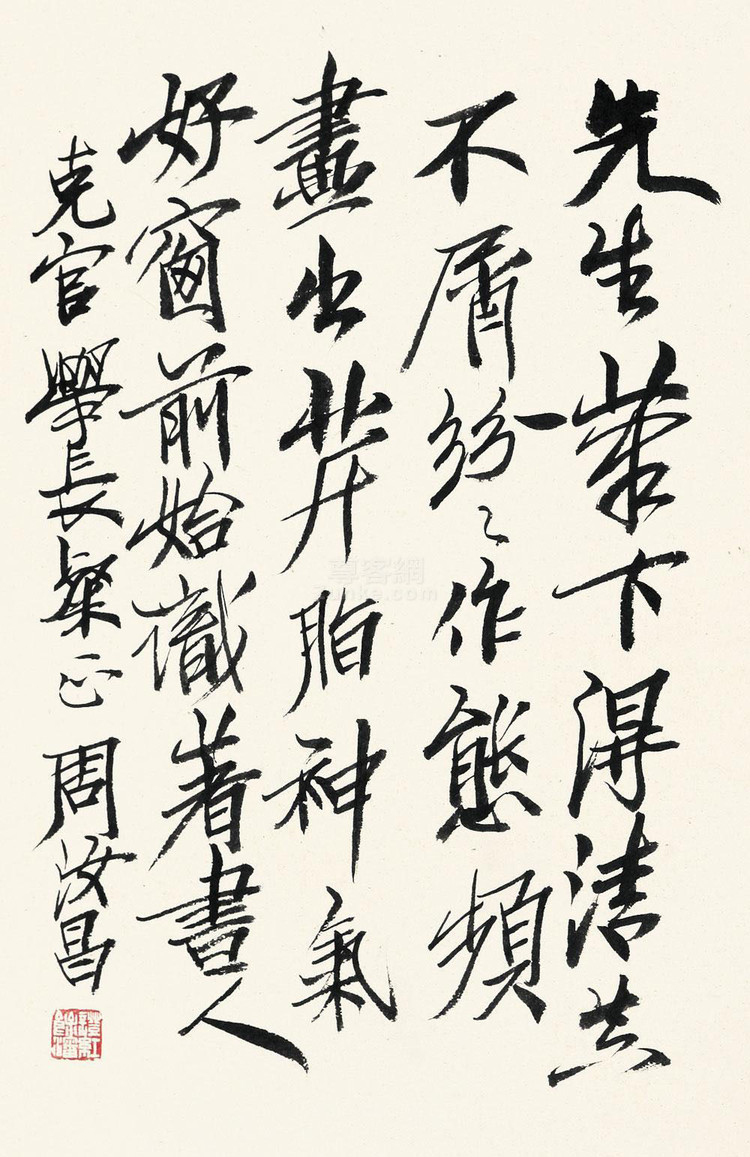 先生筆下得清真
不屑紛々作態頻
畫出芹脂神氣
好窗前始識著書人
克官學長粲正 周汝昌
尊客網
Zunka.com